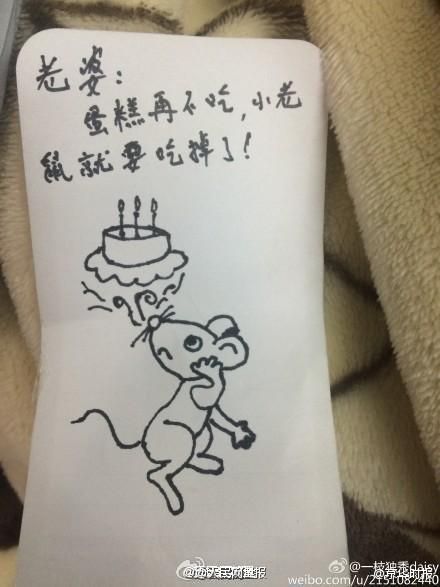 老婆：
蛋糕再不吃,小老
鼠就要吃掉了!
@一枝独秀daisy
weibo.com/u/2151082440